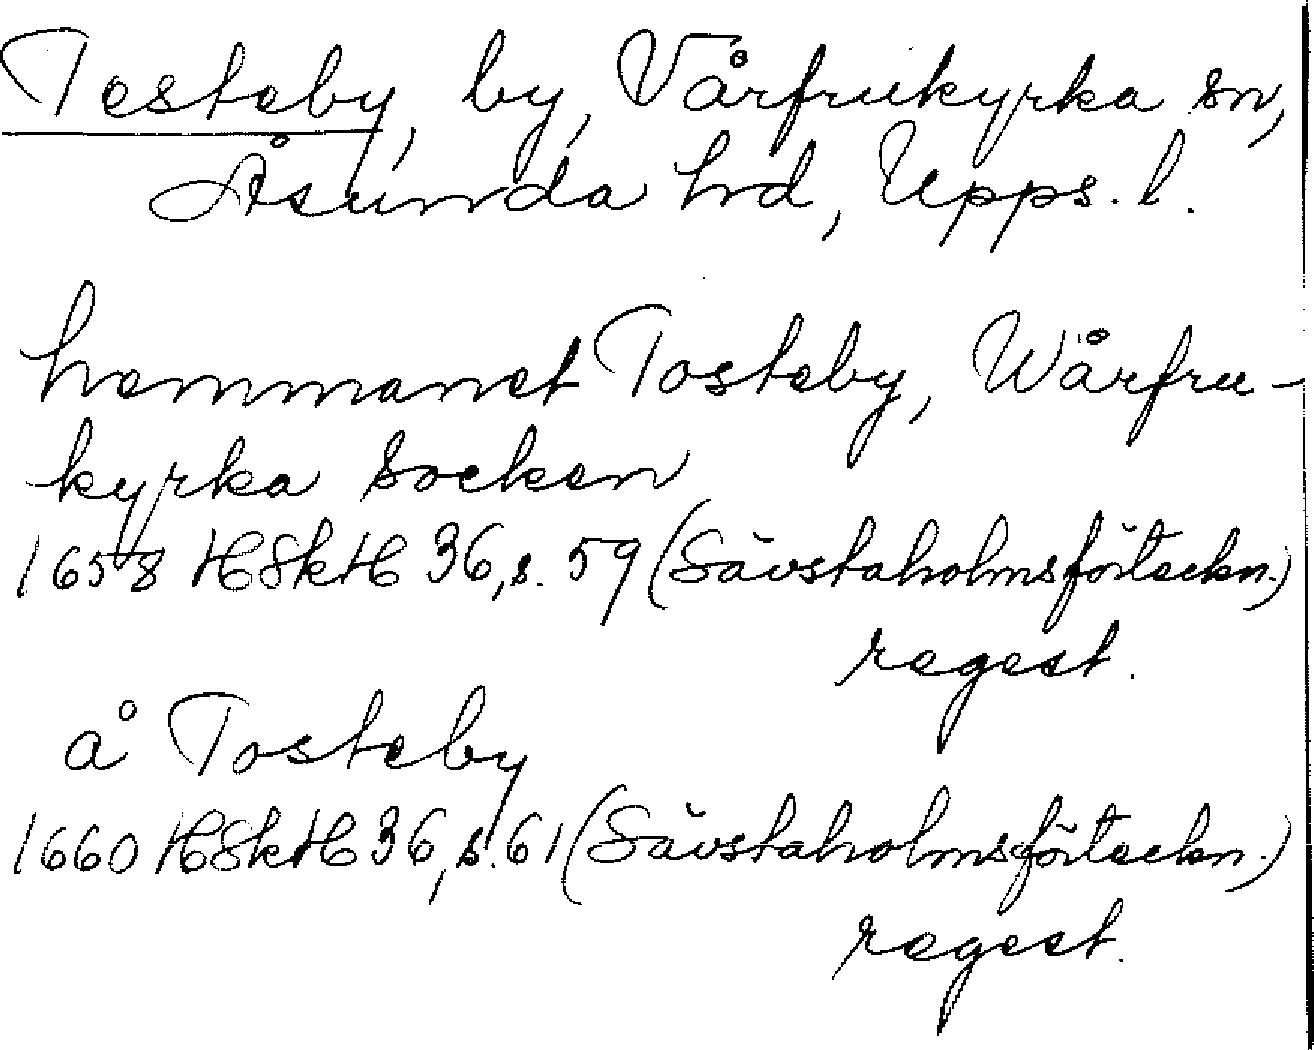 Testeby, by, Vårfrukyrka sn,
Åsunda hd, Upps. l.
hemmanet Tosteby, Wårfru-
kyrka socken
1658 HSkH 36, s. 59 (Sävstaholmsförteckn.)
regest.
å Tosteby
1660 HSkH 36, s. 61 (Sävstaholmsförteckn.)
regest.